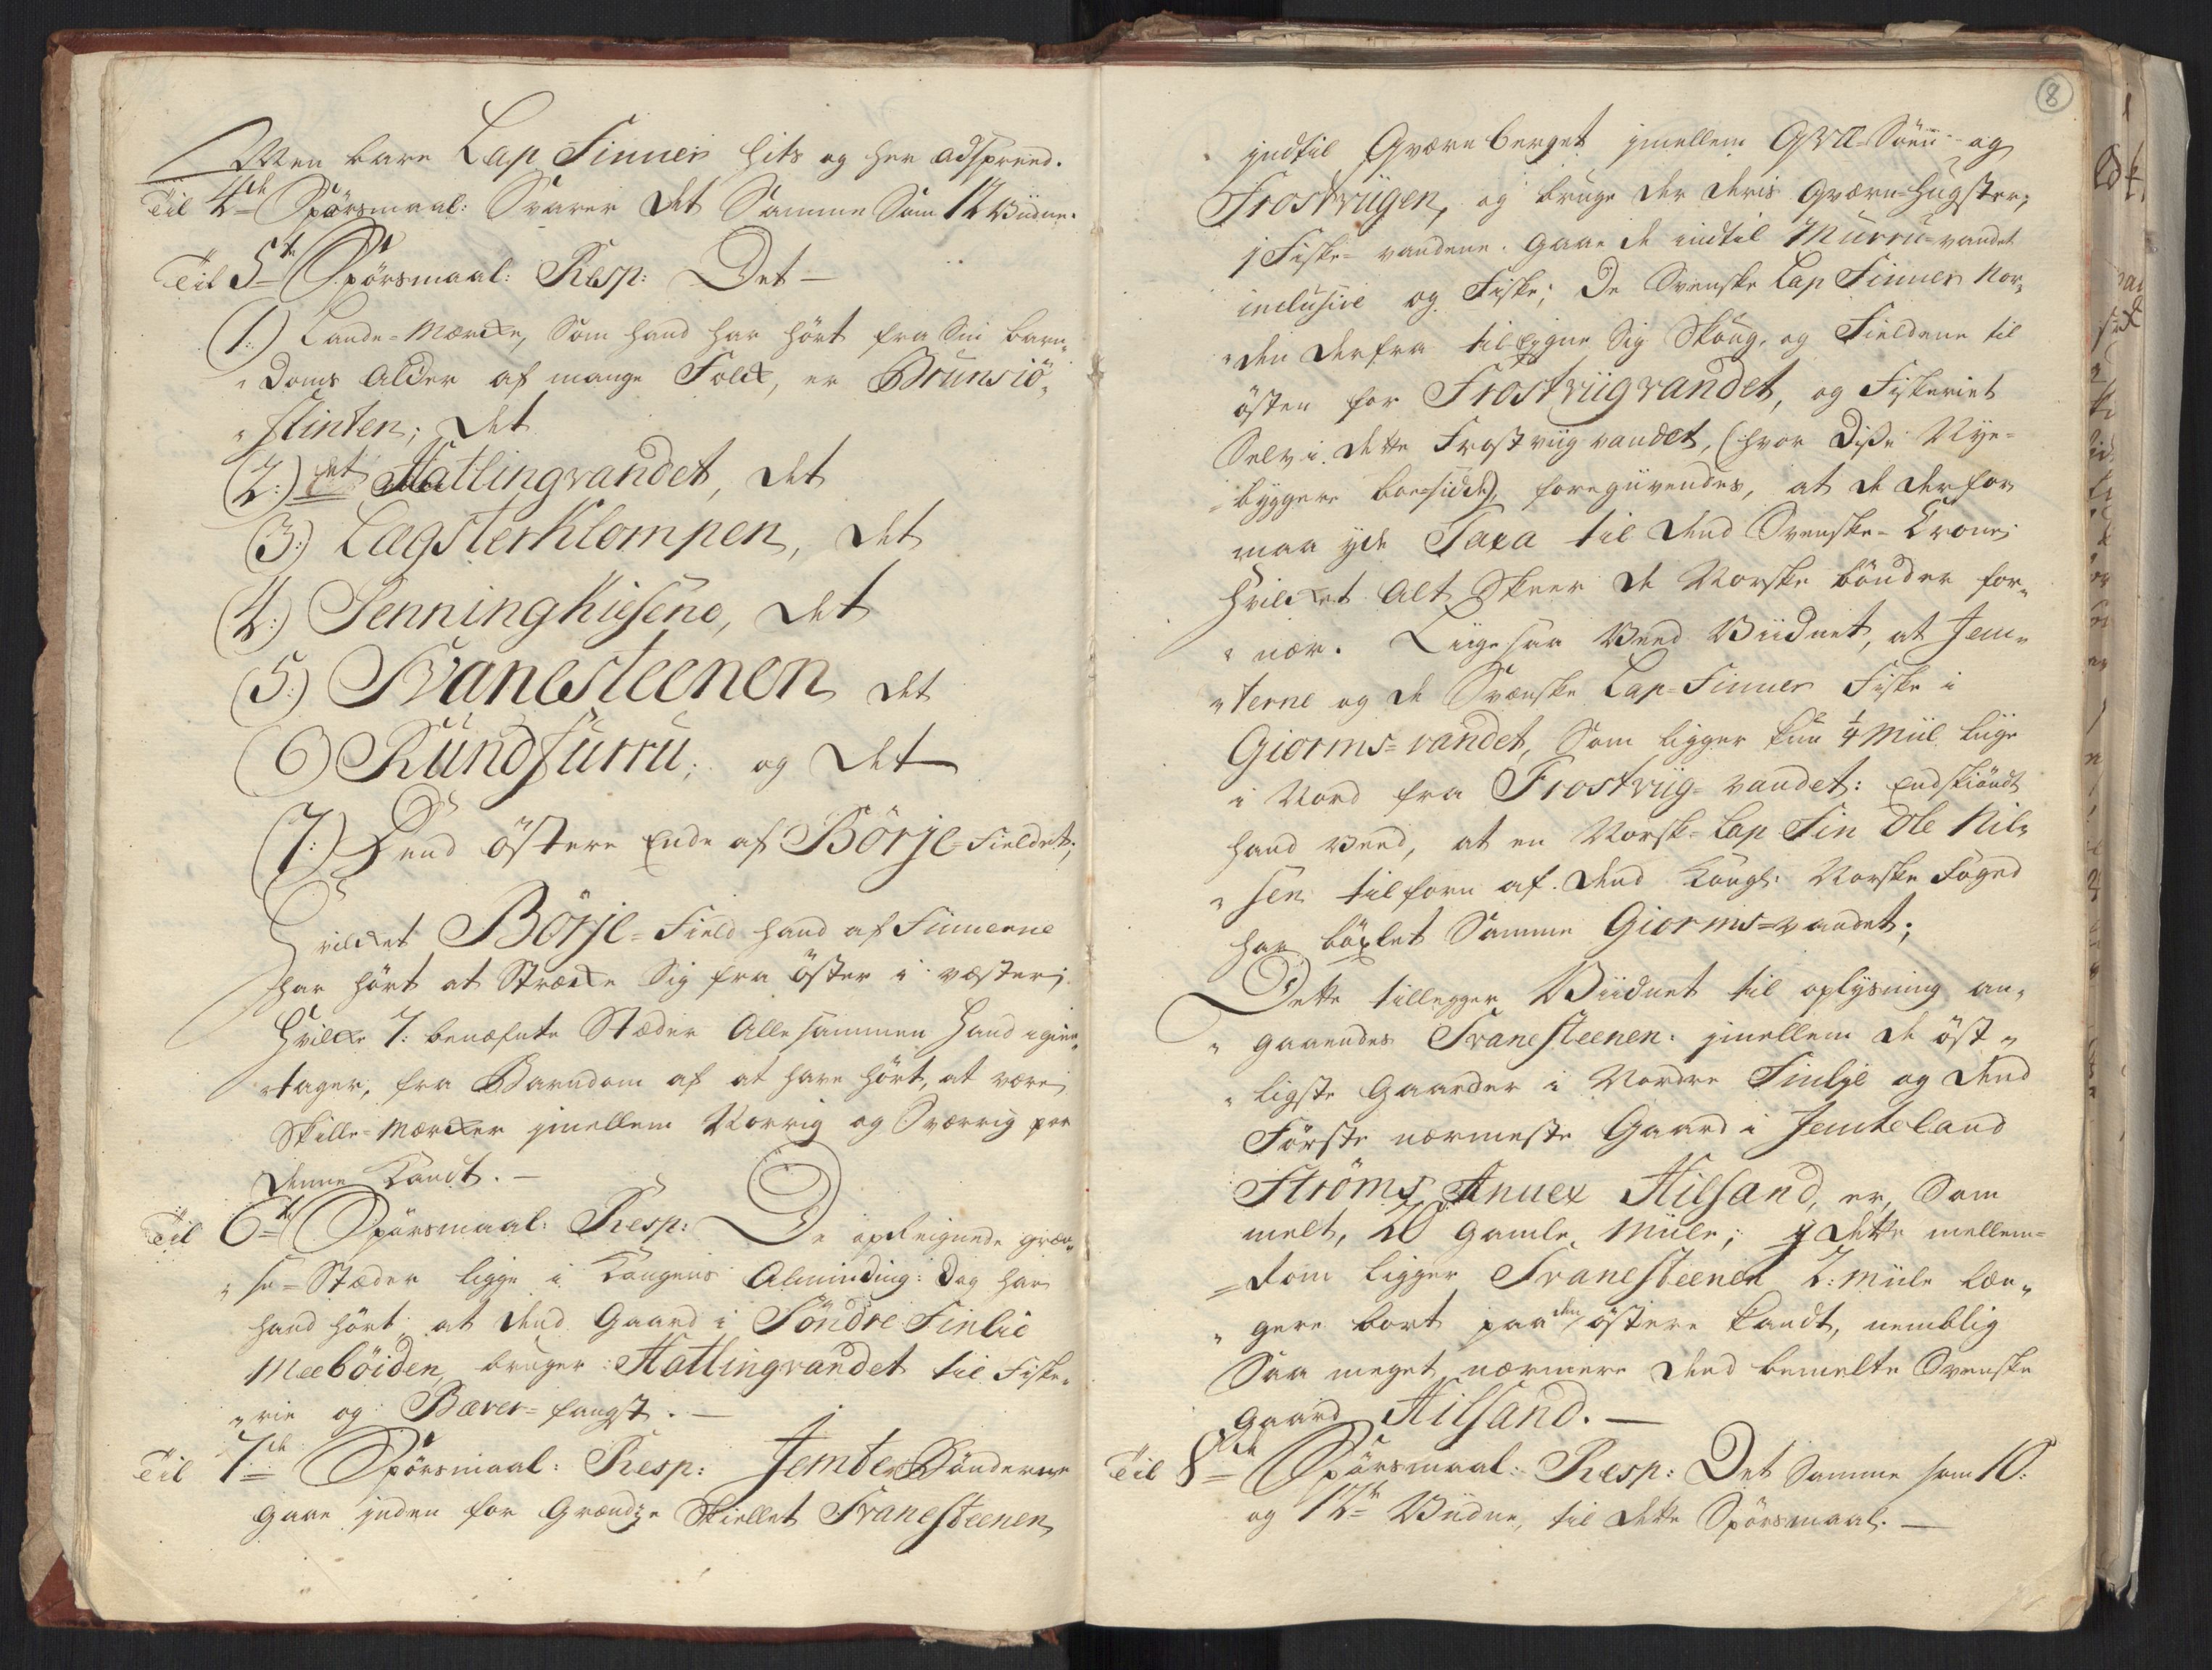 Men bare Lap Finner hits og her adspreed.
Til 4de Spörsmaal: Svarer det Samme Som 12 Viidne.
Til 5te Spörsmaal: Resp: Det —
(1.) Lande-Mærcke, Som hand har hört fra Sin barn„
„doms Alder af mange Folck, er Brunsiö„
„flinten; det
(2:) det Hatlingvandet, det
(3:) Lægsterklompen, det
(4:) Penningkiesene, det
(5:) Svanesteenen det
(6) Rundfurru; og det
(7:) Dend östere Ende af Börje-Fieldet;
Hvilcket Börje-Field hand af Finnerne
har hört at Strecke Sig fra öster i vester;
Hvilcke 7: benæfnte Stæder Allesammen Hand igien„
„tager, fra Barndom af at have hört, at være
Skille-Mercker imellem Norrig og Sverrig paa
denne Kandt. —
Til 6te Spörsmaal: Resp: De opteignede græn„
„se-Stæder ligge i Kongens Alminding: dog har
hand hört at dend Gaard i Söndre Finlie
Meeböiden, bruger Hatlingvandet til Fiske„
„rie og Bæver-fangst. —
Til 7de Spörsmaal: Resp: Jemte Bönderne
gaae inden for Grændze Skiellet Svanesteenen
8
indtil Qværnberget imellem Qvæ-Söen og
Frostviigen, og bruge der deris Qværn-Hugster;
i Fiske-vandene. gaae de indtil Murru-vandet
inclusive og Fiske; De Svenske Lap Finner Nor„
„den derfra tilEygne Sig Skoug, og Fieldene til
östen for Frostviigvandet, og Fiskeriet
Selv i dette Frostviigvandet, (hvor disse Nye-
-byggere boesidde), foregivendes, at de derfor
maa yde Taxa til dend Svenske-Krone;
Hvilcket Alt Skeer de Norske bönder for„
„nær. Liigesaa Veed Viidnet, at Jem„
„terne og de Svænske Lap-Finner Fiske i
Giorms-vandet, Som ligger kun 1/4 Miil liige
i Nord fra Frostviig-vandet: Endskiöndt
hand veed, at en Norsk-Lap Fin Ole Nil„
„sen tilforn af dend Kongl: Norske Foged
har böxlet Samme Giorms-vandet;
Dette tillegger Viidnet til oplysning an„
„gaaendes Svanesteenen: imellem de öst„
„ligste Gaarder i Nordre Finlje og dend
Förste nærmeste Gaard i Jemteland
Ströms Annex Hilsand, er, Som
melt, 20 gamle Miile; i dette mellem-
-Rom ligger Svanesteenen 2: Miile læn„
„gere bort paa den östere kandt, nemblig
Saa meget nærmere dend bemelte Svenske
Gaard Hilsand. —
Til 8de Spörsmaal: Resp: Det Samme som 10:
og 12te Viidne, til dette Spörsmaal. —